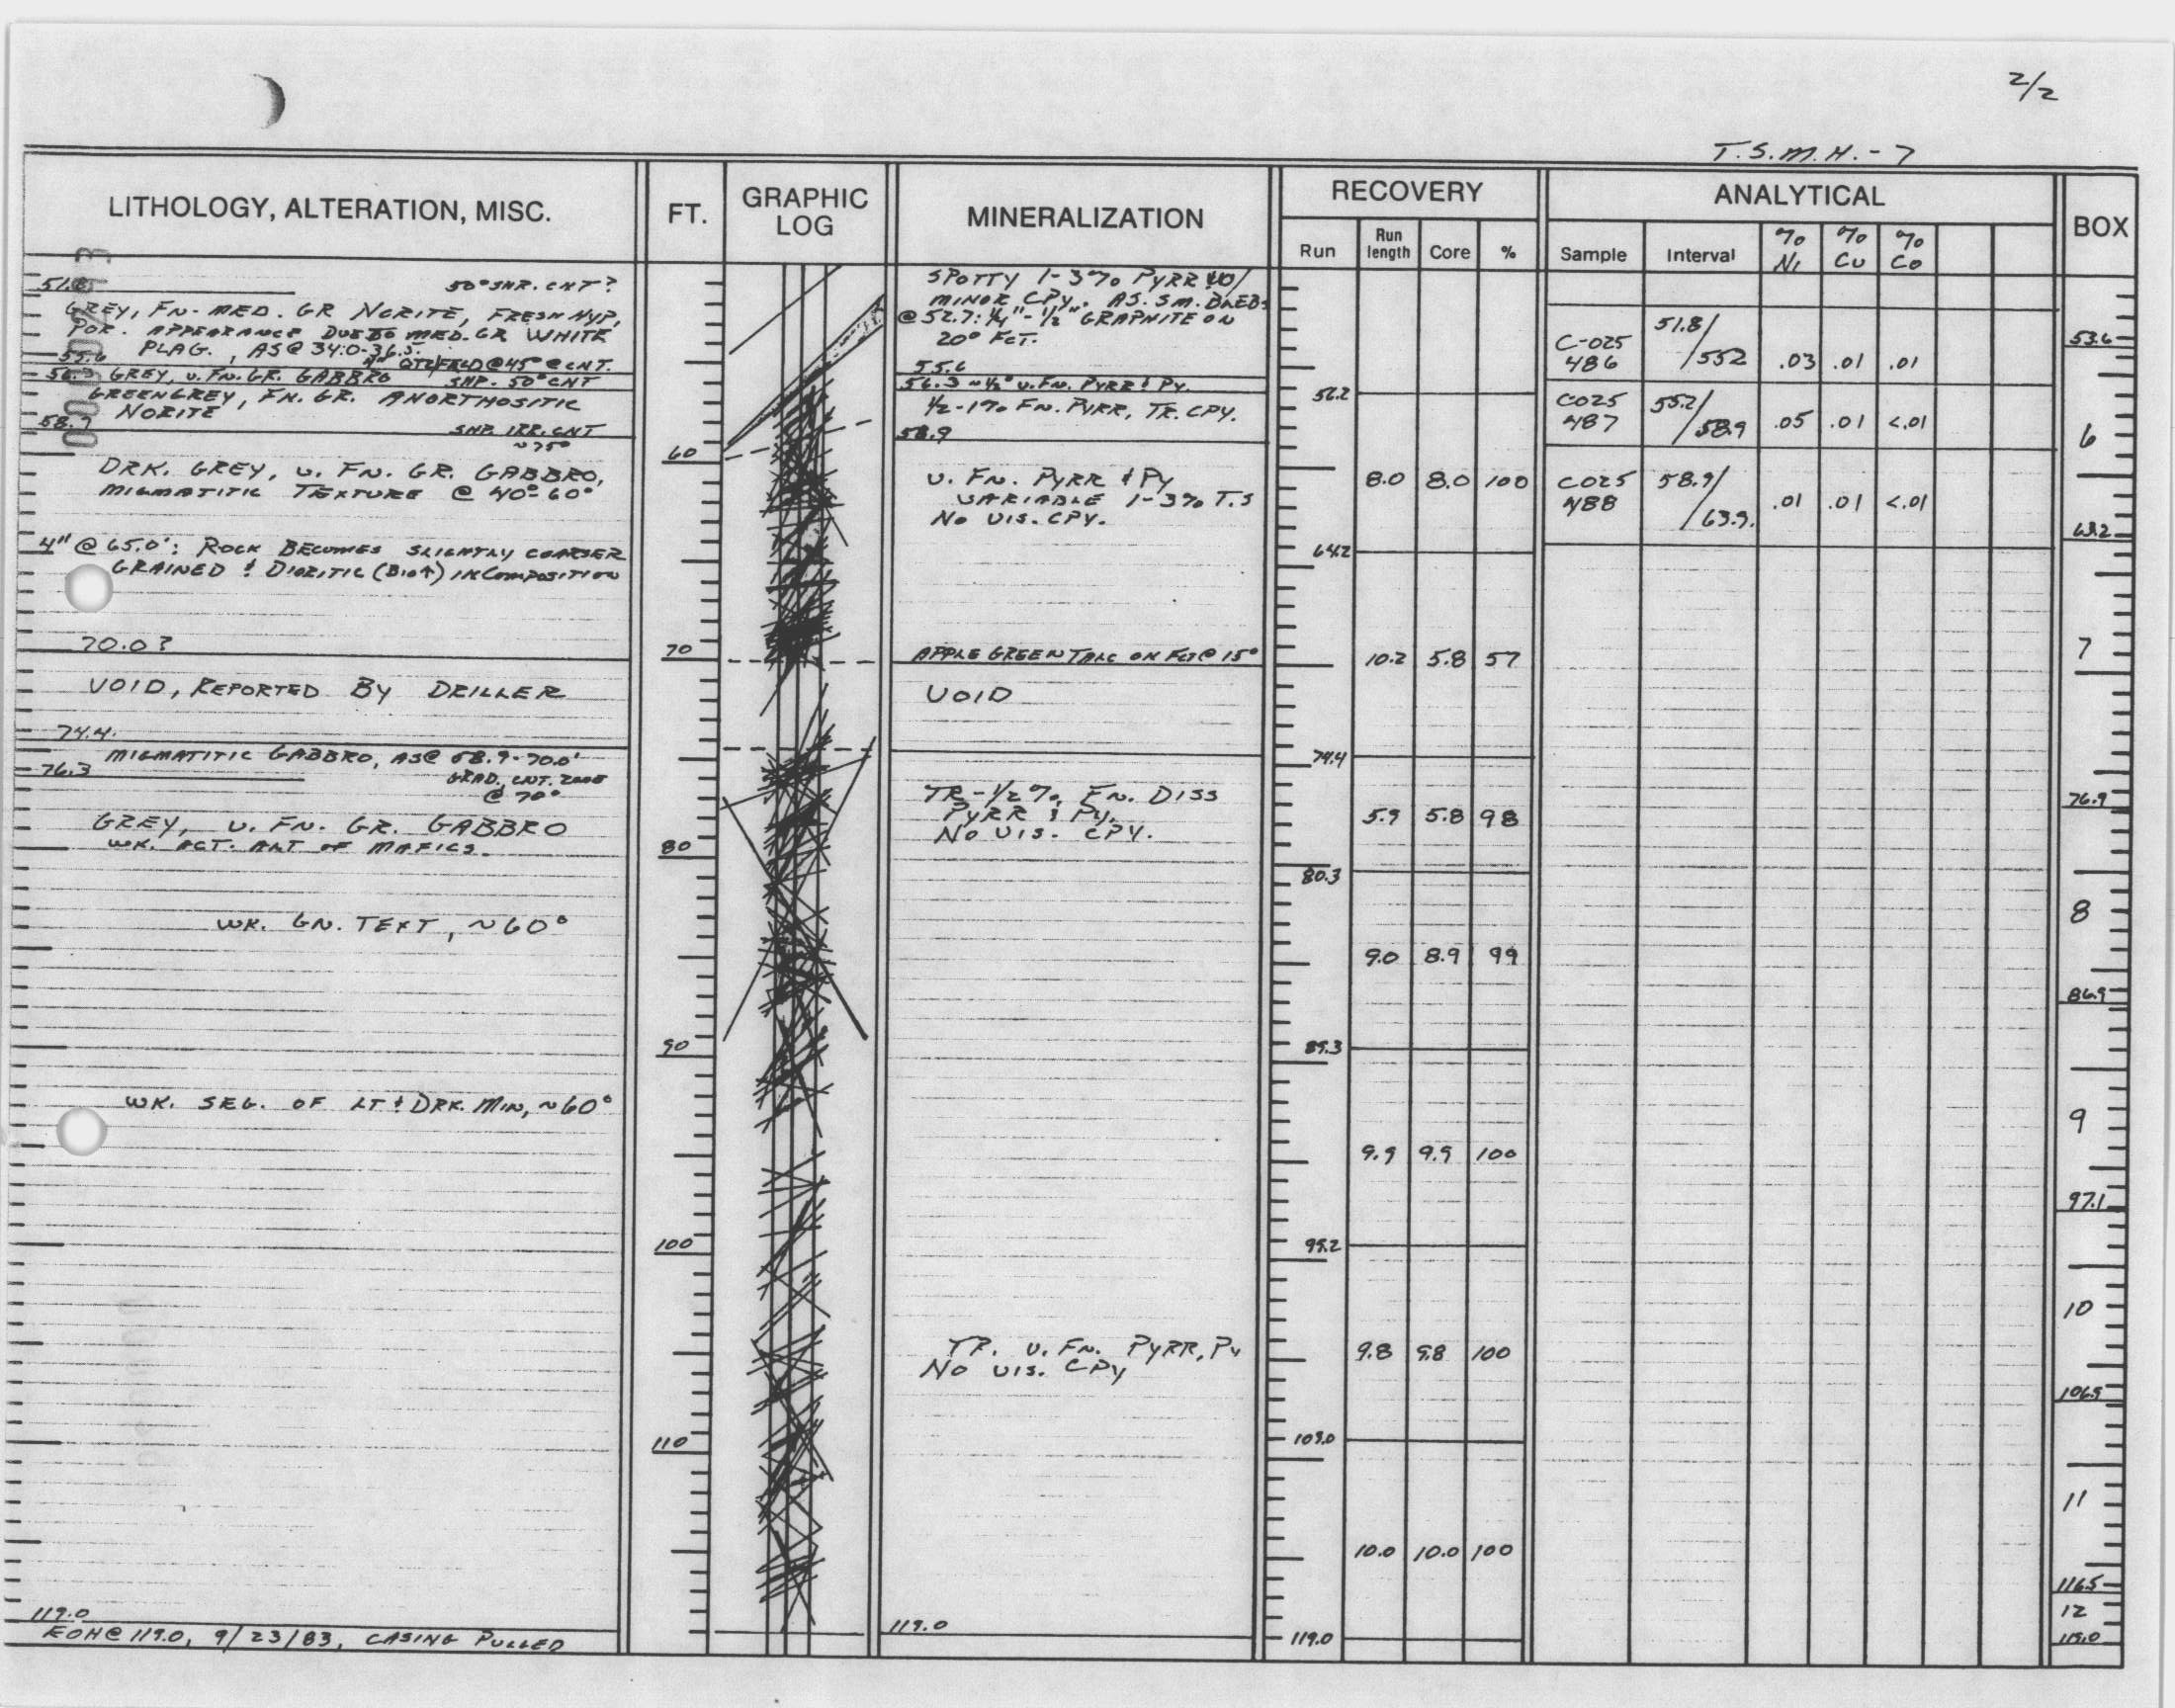 2/2
T.S.M.H.-7
LITHOLOGY, ALTERATION, MISC.
FT.
GRAPHIC
LOG
MINERALIZATION
RECOVERY
Run
Run
length
Core
%
ANALYTICAL
Sample
Interval
%
Ni
%
Cu
%
Co
BOX
51.8
50° SHP. CNT?
GREY, FN-MED. GR NORITE, FRESH HYP,
POR. APPEARANCE DUE TO MED. GR WHITE
PLAG., AS @ 34.0-36.5.
55.6
QTZ/FELD @ 45° @ CNT.
56.3 GREY, V. FN. GR. GABBRO SHP. 50° CNT
GREENGREY, FN. GR. ANORTHOSITIC
NORITE
58.9
SHP. IRR. CNT
~75°
DRK. GREY, V. FN. GR. GABBRO,
MIGMATITIC TEXTURE @ 40°-60°
4" @ 65.0': ROCK BECOMES SLIGHTLY COARSER
GRAINED & DIORITIC (BIO↑) IN COMPOSITION
70.0?
VOID, REPORTED BY DRILLER
74.4
MIGMATITIC GABBRO, AS @ 58.9-70.0'
76.3
GRAD. CNT. ZONE
@ 70°
GREY, V. FN. GR. GABBRO
WK. ACT. ALT OF MAFICS.
WK. GN. TEXT, ~60°
WK. SEG. OF LT & DRK. MIN, ~60°
119.0
EOH @ 119.0, 9/23/83, CASING PULLED
60
70
80
90
100
110
SPOTTY 1-3% PYRR W/
MINOR CPY. AS. SM. BLEBS
@ 52.7: 1/4"-1/2" GRAPHITE ON
20° FCT.
55.6
56.3 ~1/2° V. FN. PYRR & PY.
1/2-1% FN. PYRR, TR. CPY.
58.9
V. FN. PYRR & PY
VARIABLE 1-3% T.S
NO VIS. CPY.
APPLE GREEN TALC ON FCT @ 15°
VOID
TR-1/2% FN. DISS
PYRR & PY.
NO VIS. CPY.
TR. V. FN. PYRR, PY
NO VIS. CPY
119.0
56.2
8.0 8.0 100
64.2
10.2 5.8 57
74.4
5.9 5.8 98
80.3
9.0 8.9 99
89.3
9.9 9.9 100
99.2
9.8 9.8 100
109.0
10.0 10.0 100
119.0
C-025
486
51.8/
/55.2
.03 .01 .01
C025
487
55.2/
/58.9
.05 .01 <.01
C025
488
58.9/
/63.9.
.01 .01 <.01
53.6
6
63.2
7
76.9
8
86.9
9
97.1
10
106.5
11
116.5
12
119.0